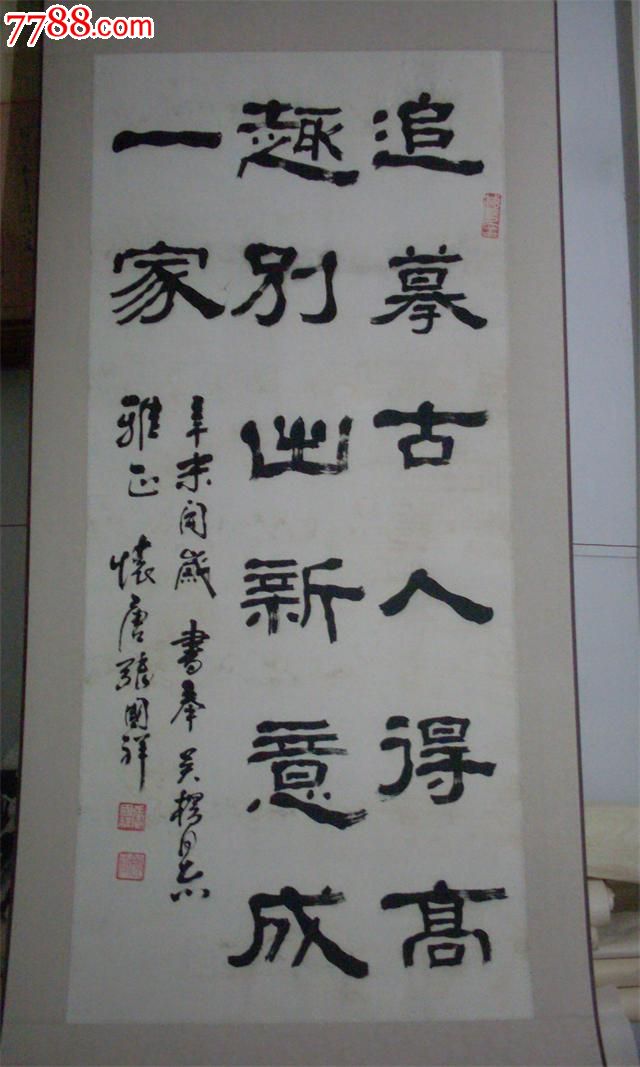 7788.com
追摹古人得高
趣别出新意成
一家
辛未闰岁 書奉 吴樱同志
雅正 懷唐張國祥